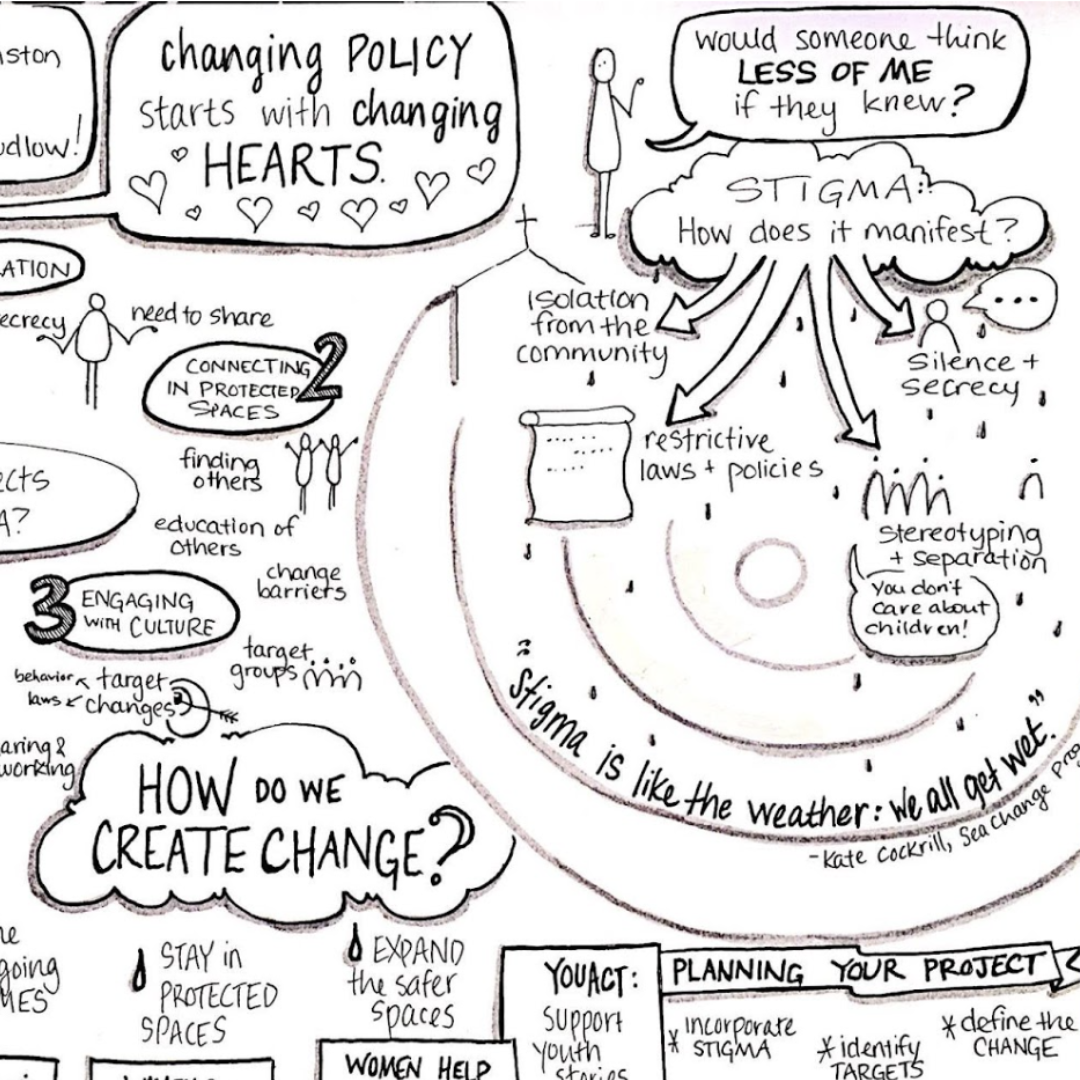 changing POLICY
starts with changing
HEARTS.
need to share
2
CONNECTING
IN PROTECTED
SPACES
finding
others
education of
others
change
barriers
3
ENGAGING
WITH CULTURE
target
groups
behavior
target
laws
changes
HOW DO WE
CREATE CHANGE?
STAY in
PROTECTED
SPACES
EXPAND
the safer
spaces
WOMEN HELP
would someone think
LESS OF ME
if they knew?
STIGMA:
How does it manifest?
isolation
from the
community
restrictive
laws + policies
...
Silence +
secrecy
stereotyping
+ separation
you don't
care about
children!
"Stigma is like the weather: we all get wet."
-Kate Cockrill, Sea Change
YOU ACT:
support
youth
stories
PLANNING YOUR PROJECT
* incorporate
STIGMA
* identify
TARGETS
* define the
CHANGE